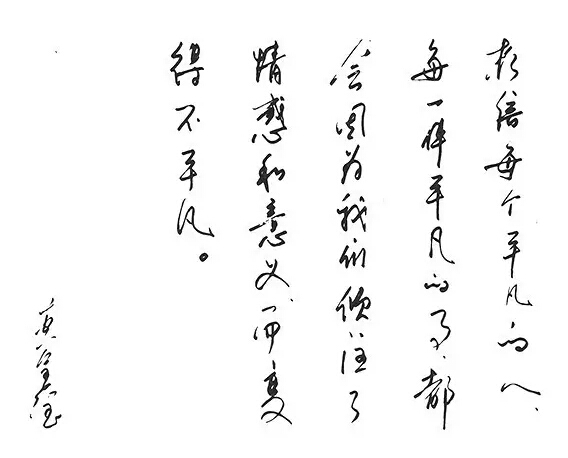 相信每个平凡的人、
每一件平凡的事、都
会因为我们倾注了
情感和意义而变
得不平凡。